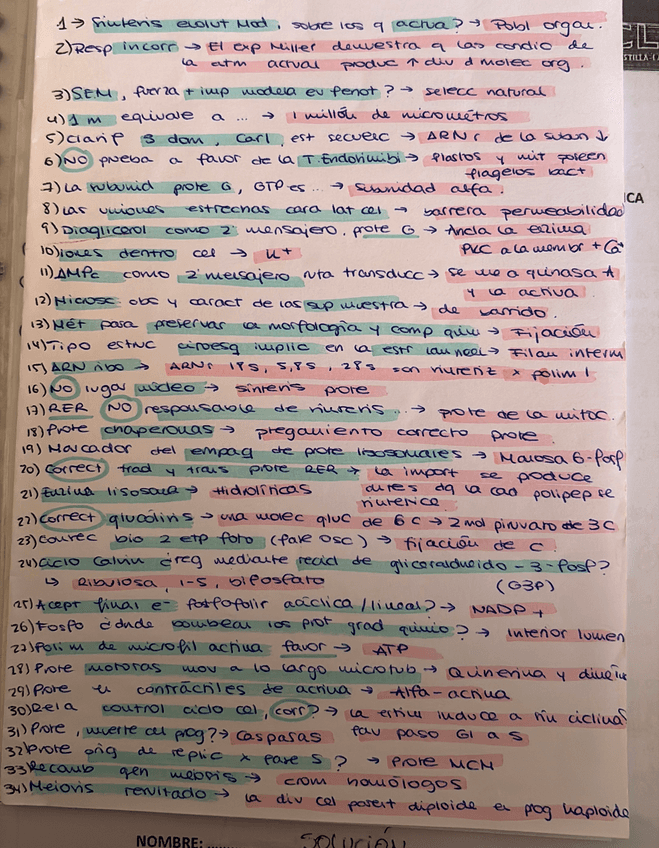 1→ Síntesis evolut Mod, sobre los q actua? → Pobl orga.
2) Resp incorr → El exp Miller demuestra q las condic de
la atm actual produc ↑ div d molec org.
3) SEM, fuerza + imp modela ev fenot? → selecc natural
4) 1 m equivale a ... → 1 millón de micrométros
5) Clasif 3 dom, Carl, est secuenc → ARNr de la subun ↓
6) NO prueba a favor de la T. Endosimbi → Plastos y mit poseen
flagelos bact
7) La subunid prote G, GTP es ... → Subunidad alfa.
8) Las uniones estrechas cara lat cel → barrera permeabilidad
9) Diaglicerol como 2º mensajero, prote G → Ancla la enzima
PKC a la membr + Ca+
10) iones dentro cel → K+
11) AMPc como 2º mensajero ruta transducc → se une a quinasa A
y la activa
12) Microsc obs y caract de las sup muestra → de barrido.
13) Mét para preservar la morfología y comp quim → Fijación
14) Tipo estruc citoesq implic en la estr lam nucl → Filam interm
15) ARN ribo → ARNr 18S, 5,8S, 28S son sintetiz x polim I
16) NO lugar núcleo → síntesis prote
17) RER NO responsable de síntesis ... → prote de la mitoc.
18) Prote chaperonas → plegamiento correcto prote.
19) Marcador del empaq de prote lisosomales → Manosa 6-fosf
20) Correct trad y trans prote RER → la import se produce
antes dq la cad polipep se
sintetice
21) Enzima lisosoma → Hidrolíticas
22) Correct glucólisis → una molec gluc de 6C → 2 mol piruvato de 3C
23) Conrec bio 2 etp foto (fase osc) → fijación de C.
24) Ciclo Calvin ¿reg mediante recicl de gliceraldheido-3-fosf?
(G3P)
↳ Ribulosa, 1-5, bifosfato
25) Acept final e- fosfofolir acíclica/lineal? → NADP+
26) Fosfo ¿dnde bombean los prot grad quimio? → Interior lumen
27) Polim de microfil activa favor → ATP
28) Prote motoras mov a lo largo microtub → Quinesina y dineína
29) Prote contráctiles de activa → Alfa-actina
30) Rela control ciclo cel, corr? → la induce a sín ciclinas
fav paso G1 a S
31) Prote, muerte cel prog? → Caspasas
32) Prote orig de replic x fase S? → Prote MCM
33) Recomb gen meiosis → crom homólogos
34) Meiosis resultado → la div cel parent diploide es prog haploide
NOMBRE: ........
SOLUCIÓN